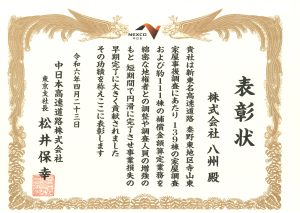 NEXCO
中日本
表彰状
株式会社 八州 殿
貴社は新東名高速道路 秦野東地区寺山東
家屋事後調査にあたり 139棟の家屋調査
および約111棟の補償金額算定業務を
綿密な地権者との調整や調査人員の増強の
もと 短期間で円滑に完了させ事業損失の
早期完了に大きく貢献されました
その功績を称え ここに表彰します
令和六年四月二十三日
中日本高速道路株式会社
東京支社長 松井保幸